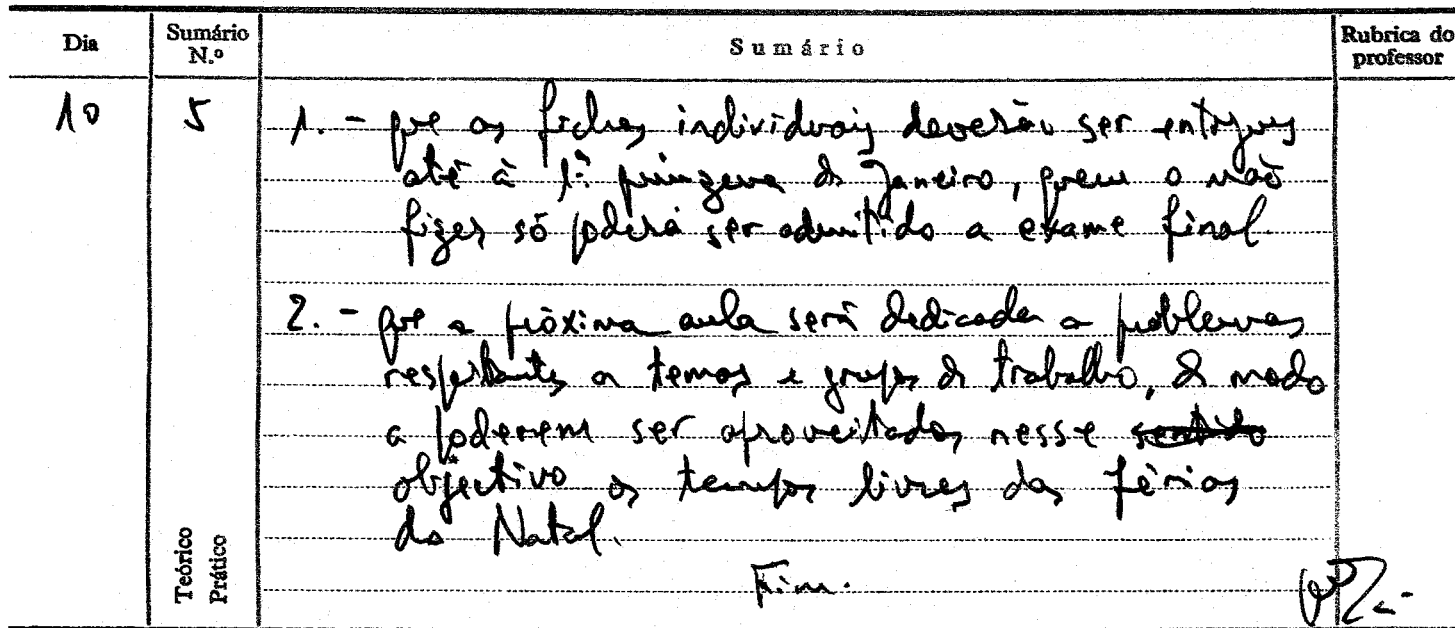 Dia Sumário N.º Sumário Rubrica do professor
10 5 1. - que as fichas individuais deverão ser entregues
até à 1ª quinzena de Janeiro, quem o não
fizer só poderá ser admitido a exame final.
2. - que a próxima aula será dedicada a problemas
respeitantes a temas e grupos de trabalho, de modo
a poderem ser aproveitados nesse sentido
objectivo os tempos livres das férias
do Natal.
Fim.
Teórico
Prático